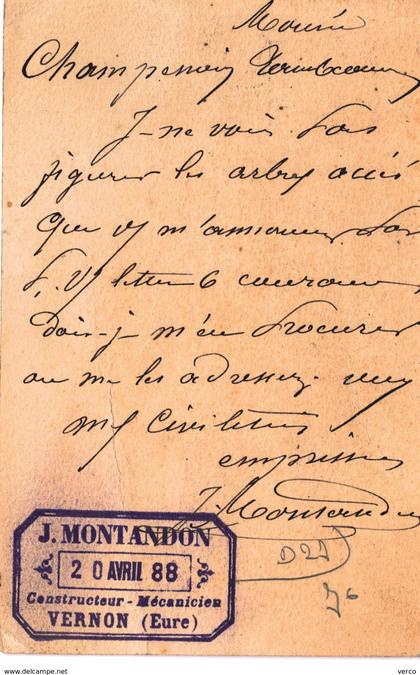 Champenois
Je ne vois pas
figurer les arbres aciés
que vs m'annoncez par
V/ lettre 6 courant
dois-je m'en procurer
ou me les adressez-vous
mes civilités
empressées
J. Montandon
J. MONTANDON
20 AVRIL 88
Constructeur - Mécanicien
VERNON (Eure)
D21
76
www.delcampe.net
verco